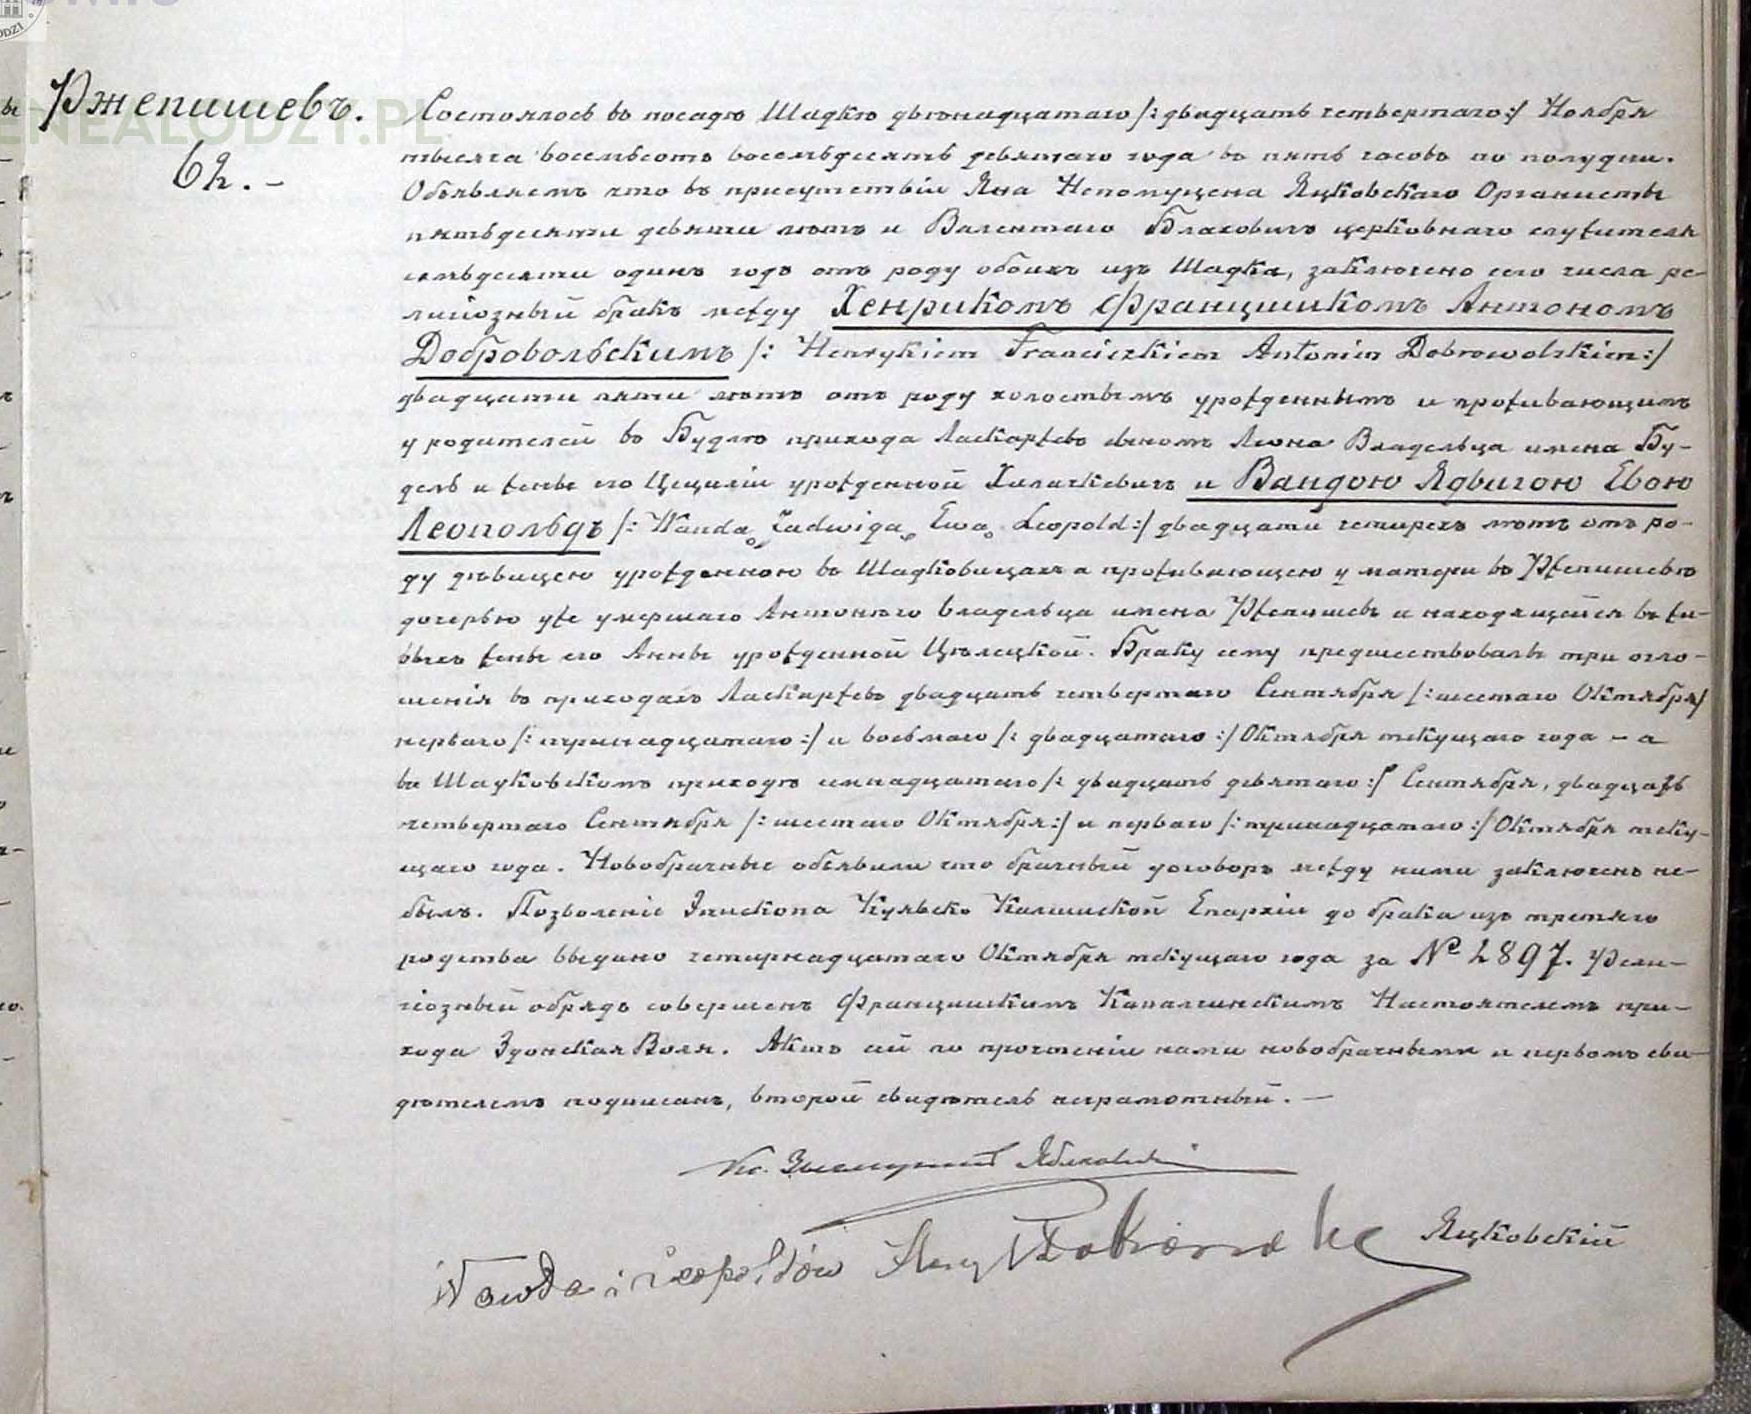 Ржепишевъ.
62.-
Состоялось въ посадѣ Шадкѣ двѣнадцатаго /: двадцать четвертаго:/ Ноября
тысяча восемьсотъ восемьдесятъ девятаго года въ пять часовъ по полудни.
Объявляемъ что въ присутствіи Яна Непомуцена Яцковскаго Органисты
пятьдесяти девяти лѣтъ и Валентаго Блаховичъ церковнаго служителя
семьдесяти одинъ годъ отъ роду обоихъ изъ Шадка, заключено сего числа ре-
лигіозный бракъ между Хенрикомъ Францишкомъ Антономъ
Добровольскимъ /: Henrykiem Franciszkiem Antonim Dobrowolskiem:/
двадцати пяти лѣтъ отъ роду холостымъ урожденнымъ и проживающимъ
у родителей въ Будлѣ прихода Ласкаржевъ сыномъ Леона Владельца имена Бу-
дель и жены его Цециліи урожденной и Вандою Ядвигою Евою
Леопольдъ /: Wanda Jadwiga Ewa Leopold:/ двадцати четырехъ лѣтъ отъ ро-
ду дѣвицею урожденною въ Шадковицахъ а проживающею у матери въ Ржепишевѣ
дочерью уже умершаго Антонѣго владельца имена Ржепишевъ и находящейся въ жи-
выхъ жены его Анны урожденной Цѣлецкой. Браку сему предшествовали три огло-
шенія въ приходахъ Ласкаржевъ двадцать четвертаго Сентября /: шестаго Октября/
перваго /: тринадцатаго:/ и восьмаго /: двадцатаго:/ Октября текущаго года - а
въ Шадковскомъ приходѣ семнадцатаго /: двадцать девятаго:/ Сентября, двадцать
четвертаго Сентября /: шестаго Октября:/ и перваго /: тринадцатаго:/ Октября теку-
щаго года. Новобрачные объявили что брачный уговоръ между ними заключенъ не-
былъ. Позволеніе Эпископа Куявско Калишской Епархіи до брака изъ третяго
родства выдано четырнадцатаго Октября текущаго года за № 2897. Рели-
гіозный обрядъ совершенъ Францишкимъ Капалчинскимъ Настоятелемъ при-
хода Здонская Воля. Актъ сей по прочтеніи нами новобрачными и первомъ сви-
дѣтелемъ подписанъ, второй свидѣтель неграмотный. —
Кс.
Wanda z Leopoldów
Яцковскій